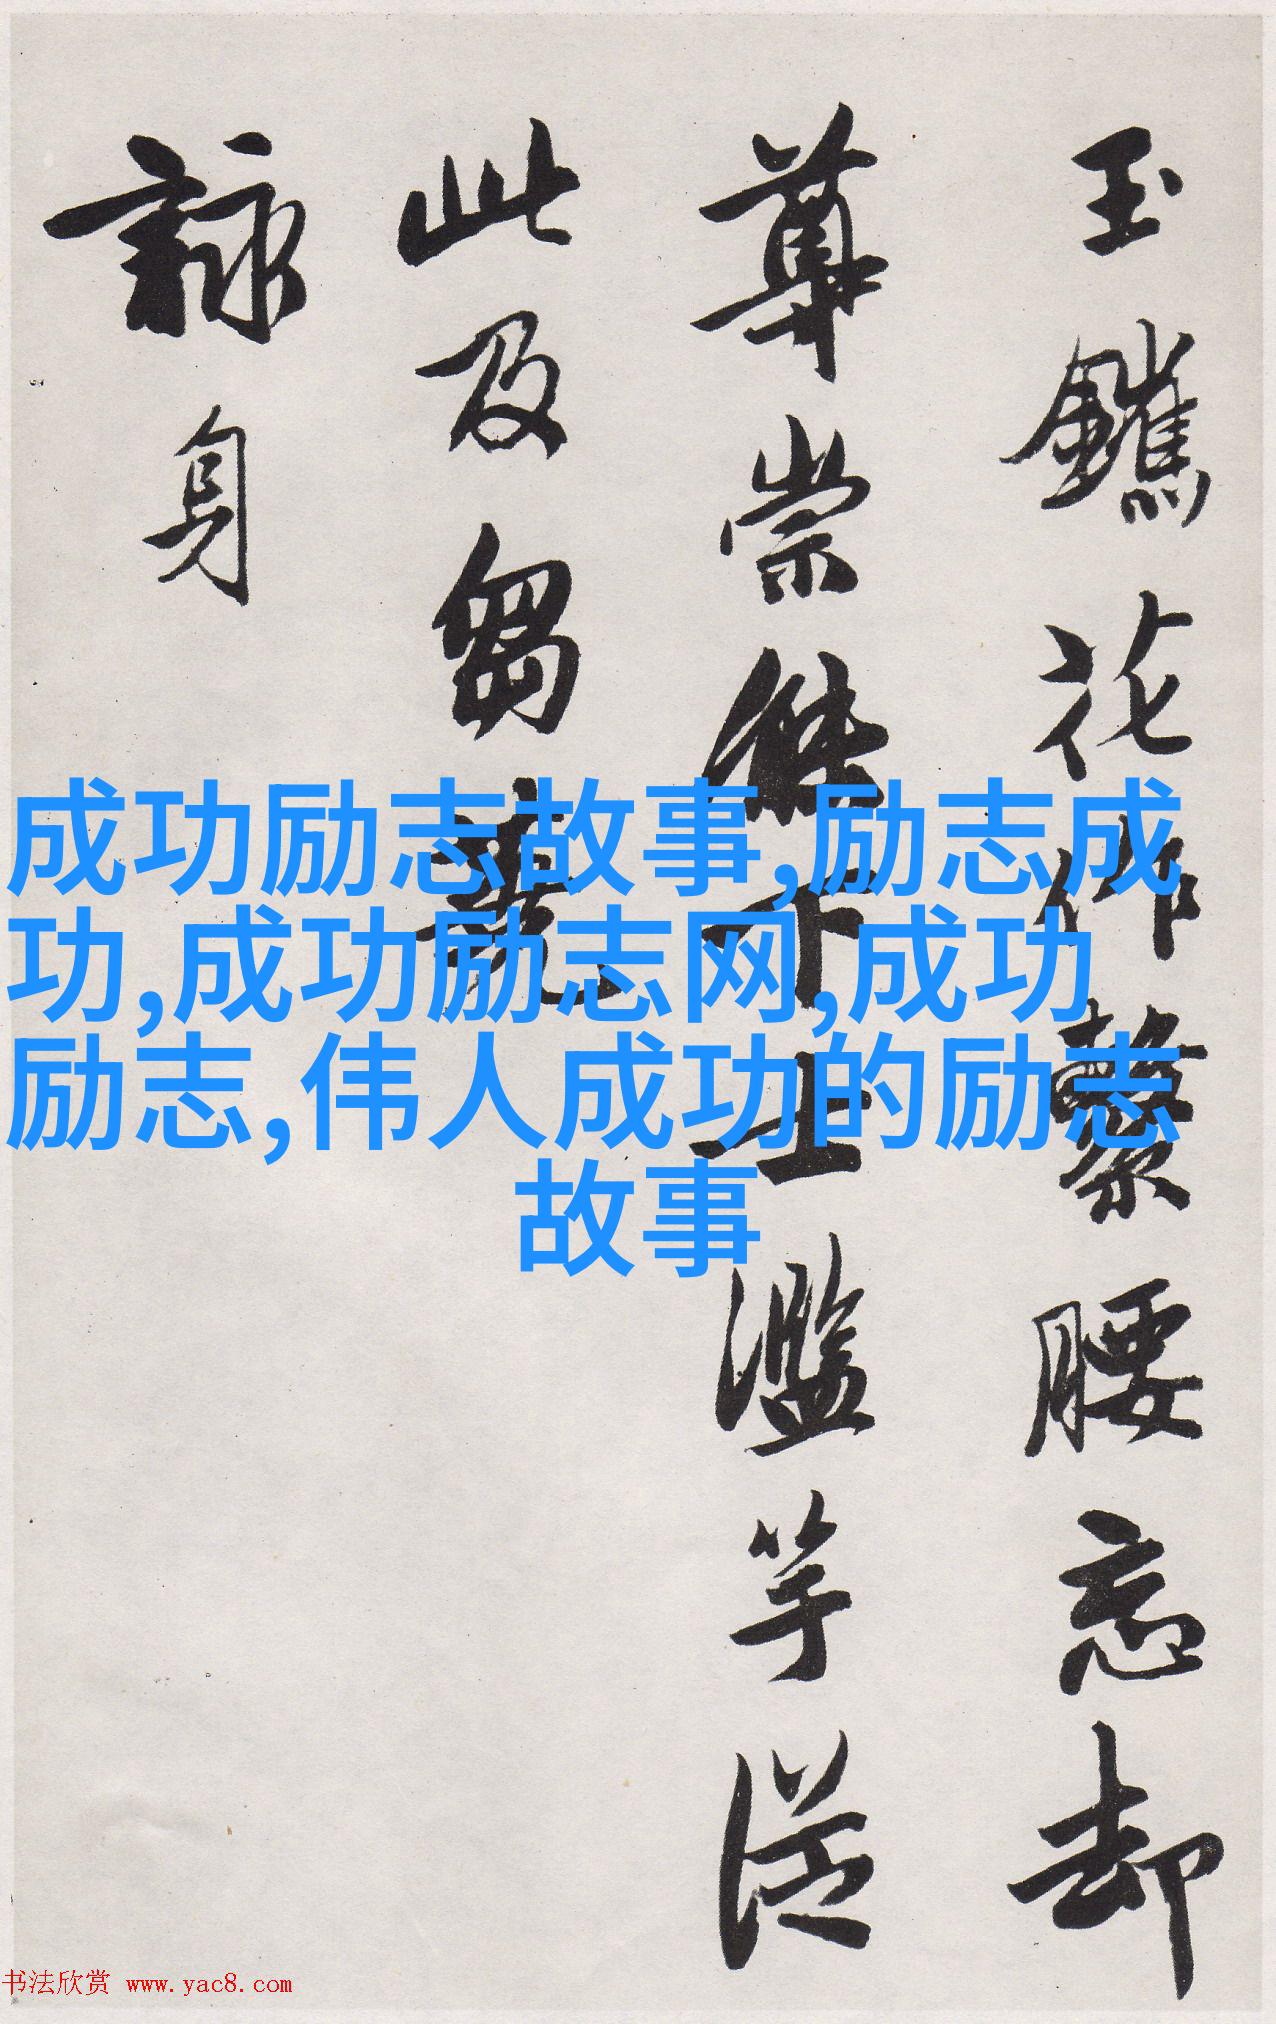 玉鑣花作繫腰忘却
蓴崇傑下士濫竽從
此及芻蕘
詠身
成功励志故事,励志成
功,成功励志网,成功
励志,伟人成功的励志
故事
书法欣赏 www.yac8.com